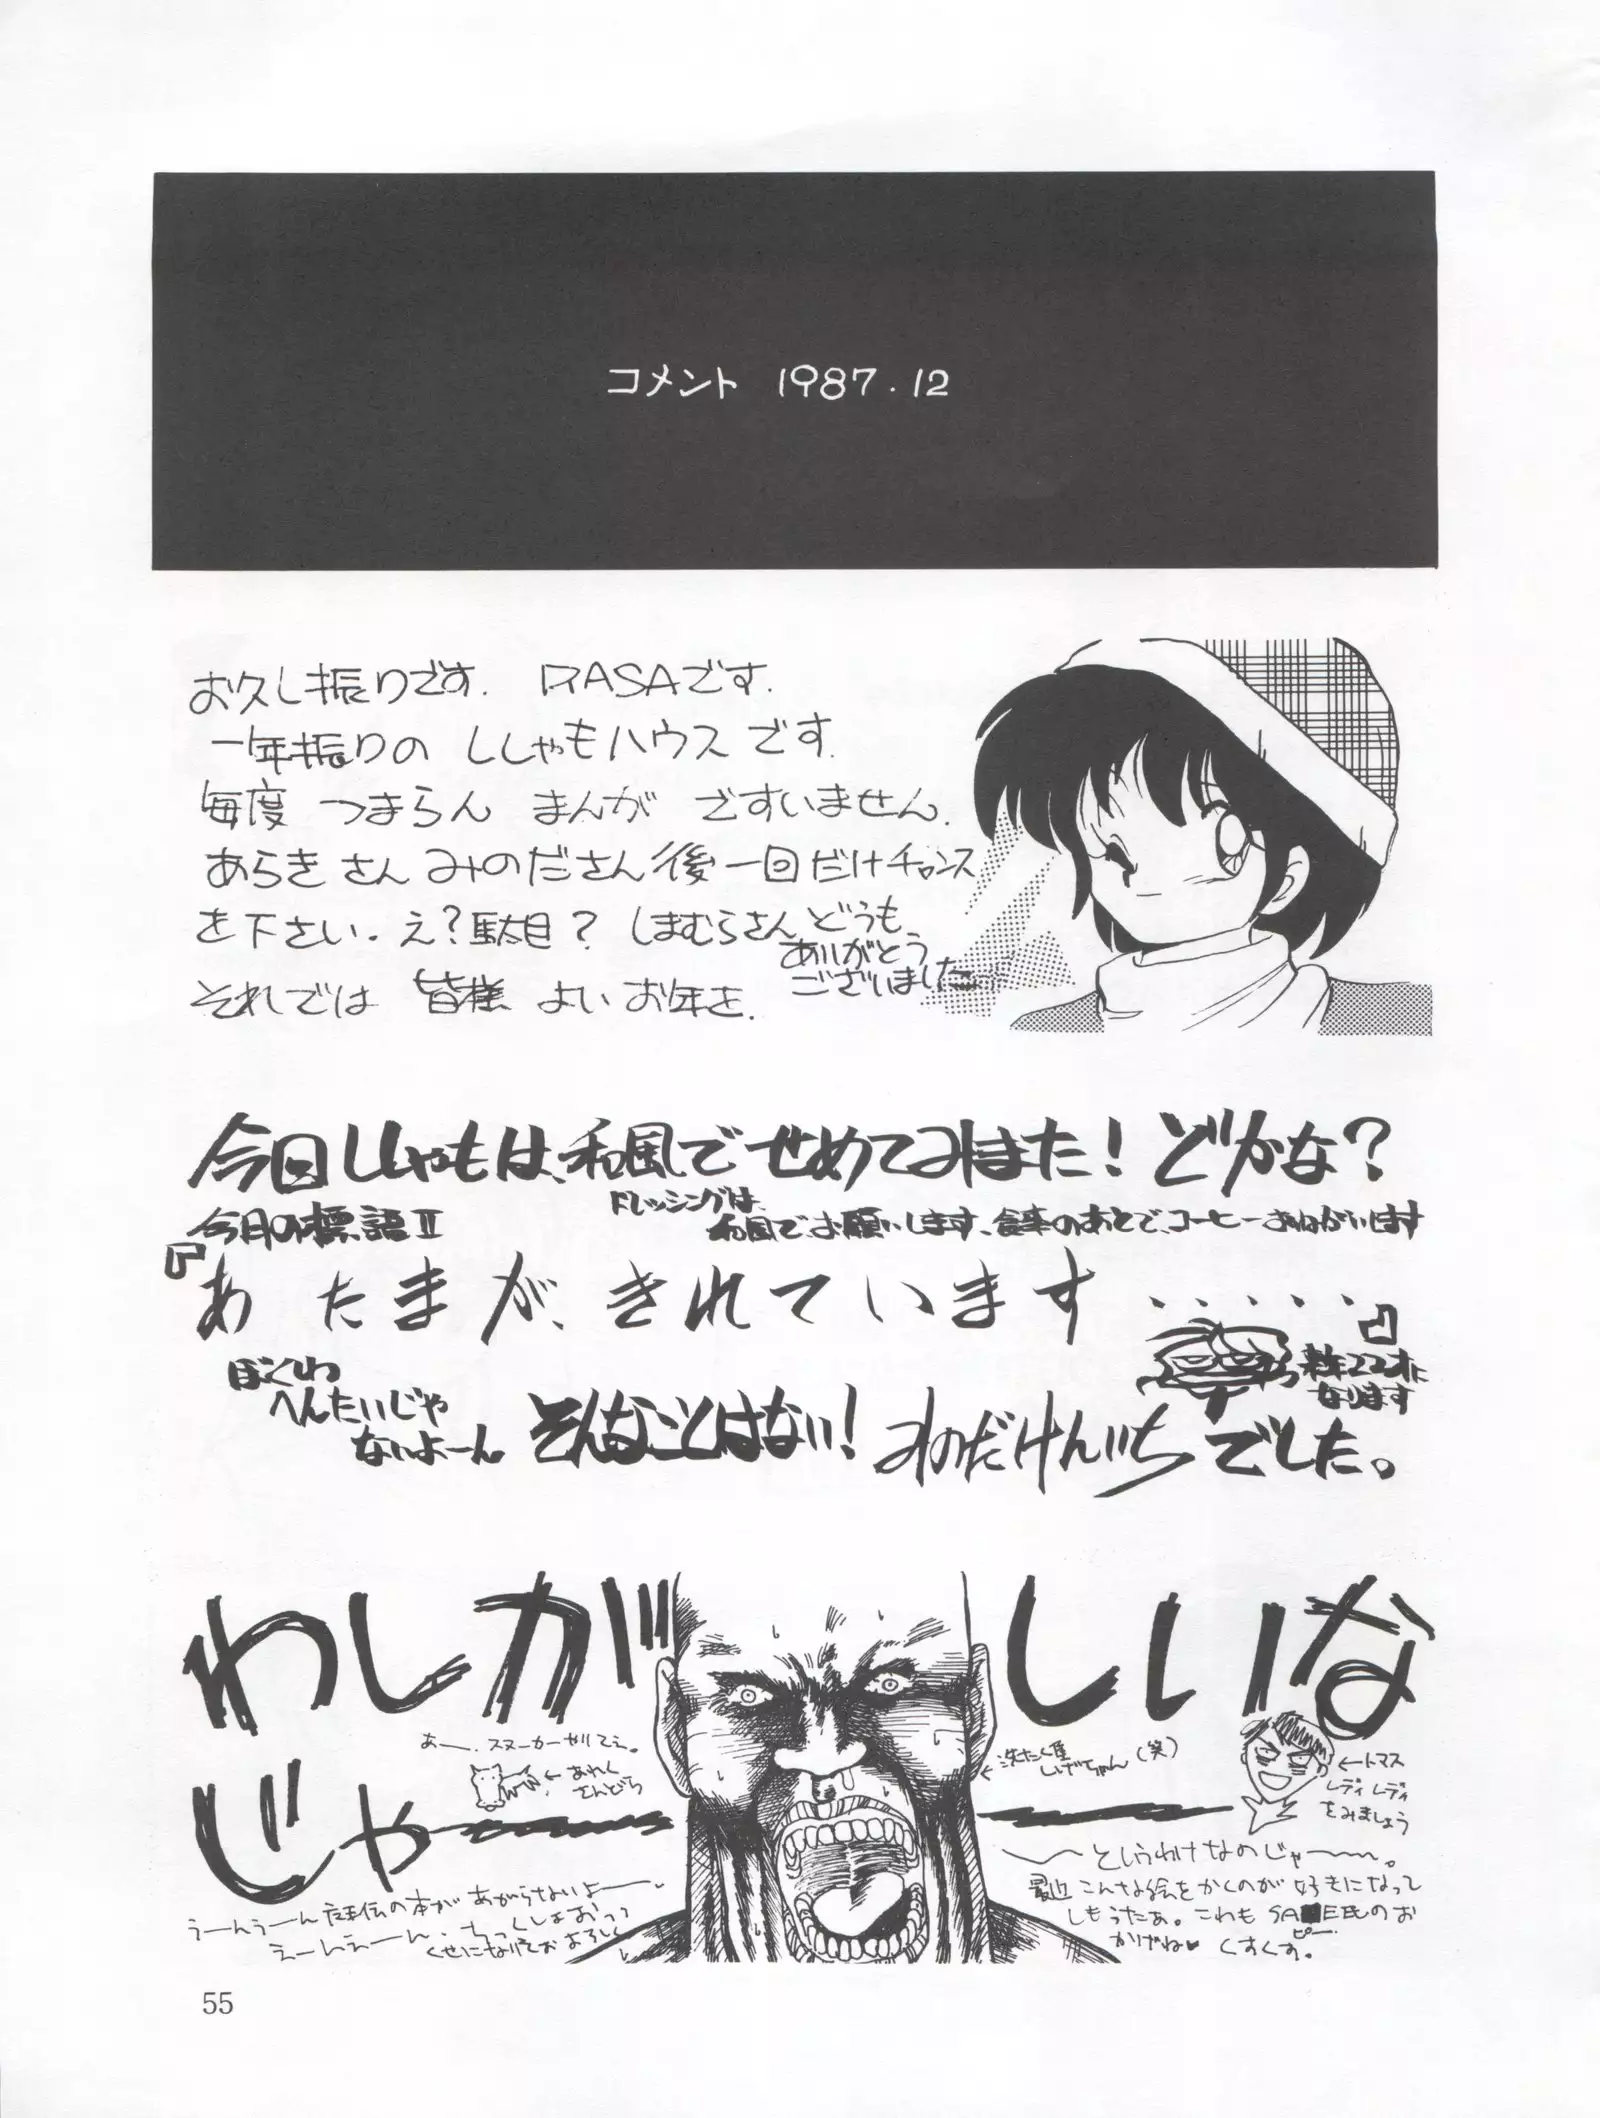 コメント 1987.12
お久し振りです. RASAです.
一年振りの ししゃもハウス です.
毎度 つまらん まんが ですいません.
あらきさん みのださん 後一回だけチャンス
を下さい. え?駄目? しまむらさん どうも
ありがとう
ございました
それでは 皆様 よい お年を.
今回ししゃもは、和風でせめてみました!どぉかな?
今月の標語Ⅱ
ドレッシングは、
和風で、お願いします、食事のあとで、コーヒーおねがいします
『あたまが、きれています・・・・・』
ぼくしわ
へんたいじゃ
ないよーん。
そんなことはない!
みのだけんいちでした。
来年22才に
なります
わしが しいな
じゃー
あー、スヌーカーやりてえ。
←あれく
さんどら
←洗たく屋
しげちゃん(笑)
←トマス
レディ レディ
をみましょう
うーんうーん の本があがらないよー、
えーんえーん.
くせになりそおよろしく
～というわけなのじゃー。
最近こんな絵をかくのが好きになって
しもうたあ。これも のお
ピー
かげね♥くすくす。
55